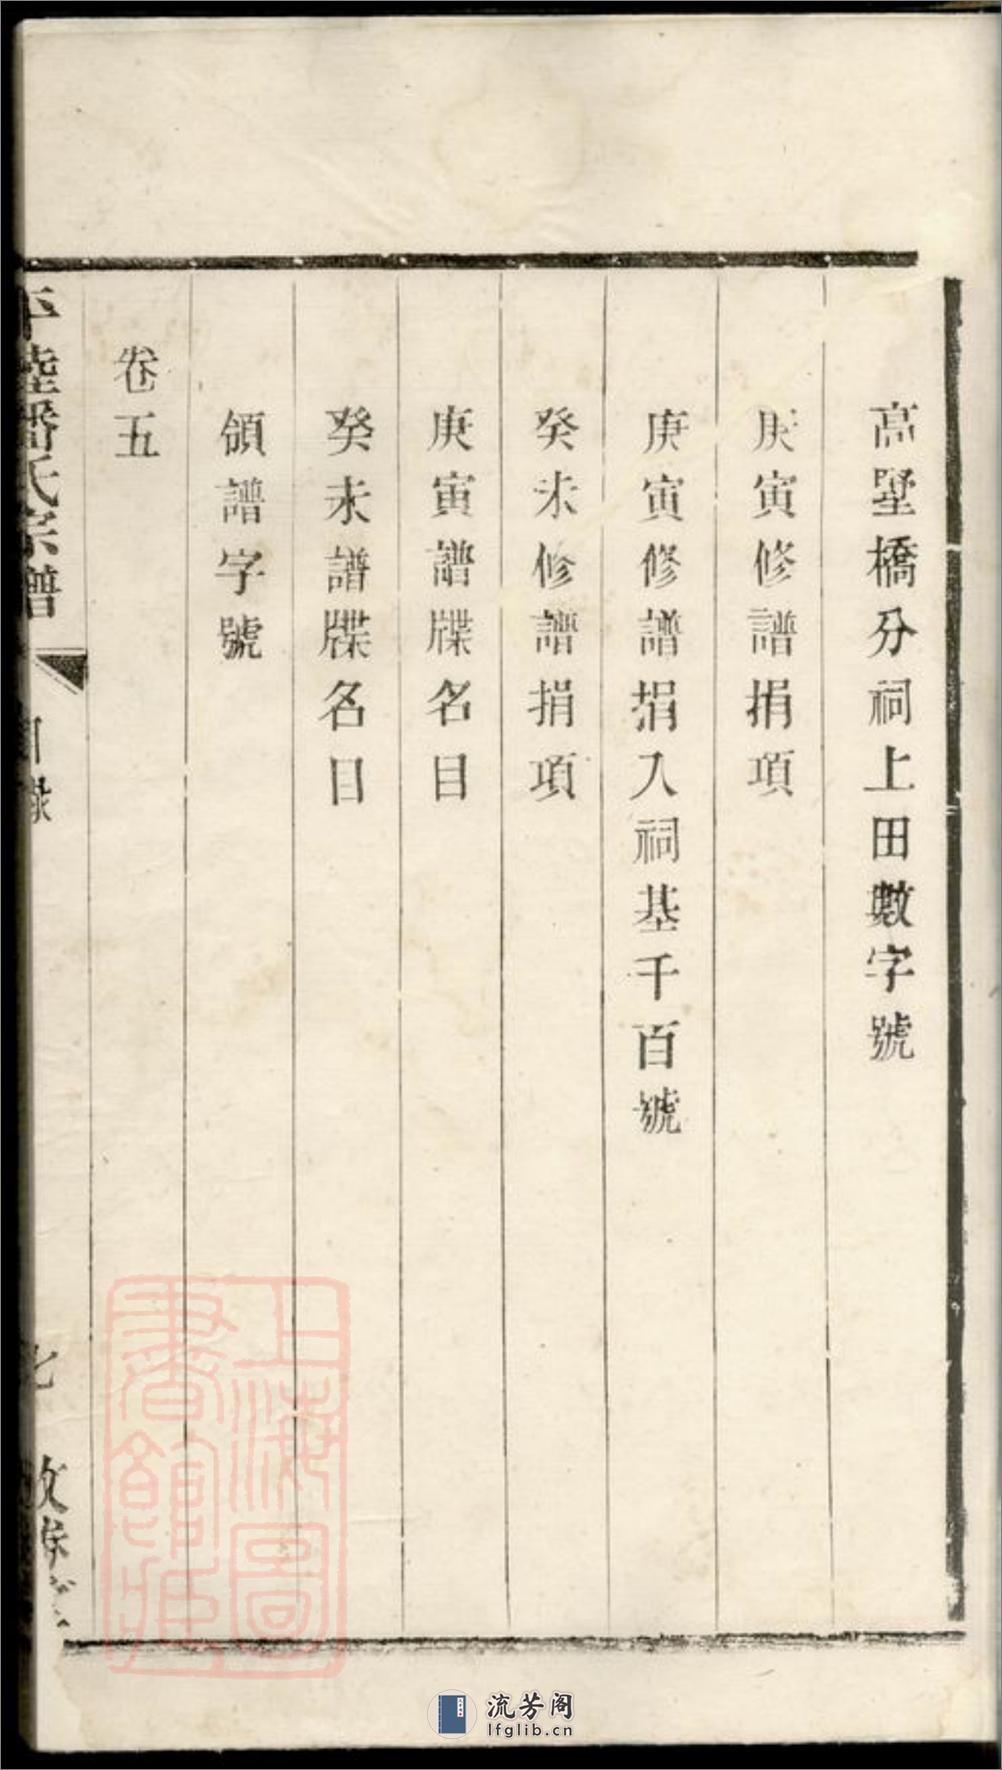 高墅橋分祠上田數字號
庚寅修譜捐項
庚寅修譜捐入祠基千百號
癸未修譜捐項
庚寅譜牒名目
癸未譜牒名目
領譜字號
卷五
平陸潘氏宗譜
目錄
七
上海圖書館藏
流芳阁
lfglib.cn